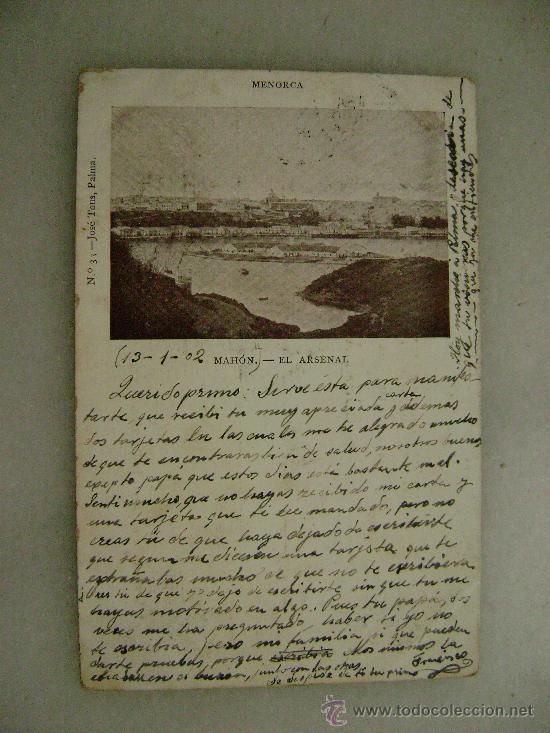 MENORCA
N.º 33—José Tous, Palma.
(13-1-02 MAHÓN.—EL ARSENAL
Querido primo: Sirve esta para manifes-
tarte que recibi tu muy apreciada carta y demas
dos tarjetas en las cuales me he alegrado mucho
de que te encontraras bien de salud, nosotros buenos
exepto papá que estos dias está bastante mal.
Senti mucho que no hayas recibido mi carta y
una tarjeta que te he mandado, pero no
creas tú de que haya dejado de escribirte
que segun me dicen en una tarjeta que te
estrañabas mucho de que no te escribiera
tú de que yo dejo de escribirte sin que tu me
hayas motivado en algo. Pues tu papá, dos
veces me ha preguntado haber si yo no
te escribia, pero mi familia si que pueden
darte pruebas, porque escribia los mismos la
en el buzon, junto con las otras.
Se despide de ti tu primo Francisco
Hoy marcho á Palma y desearia de
que tu
todocoleccion
www.todocoleccion.net